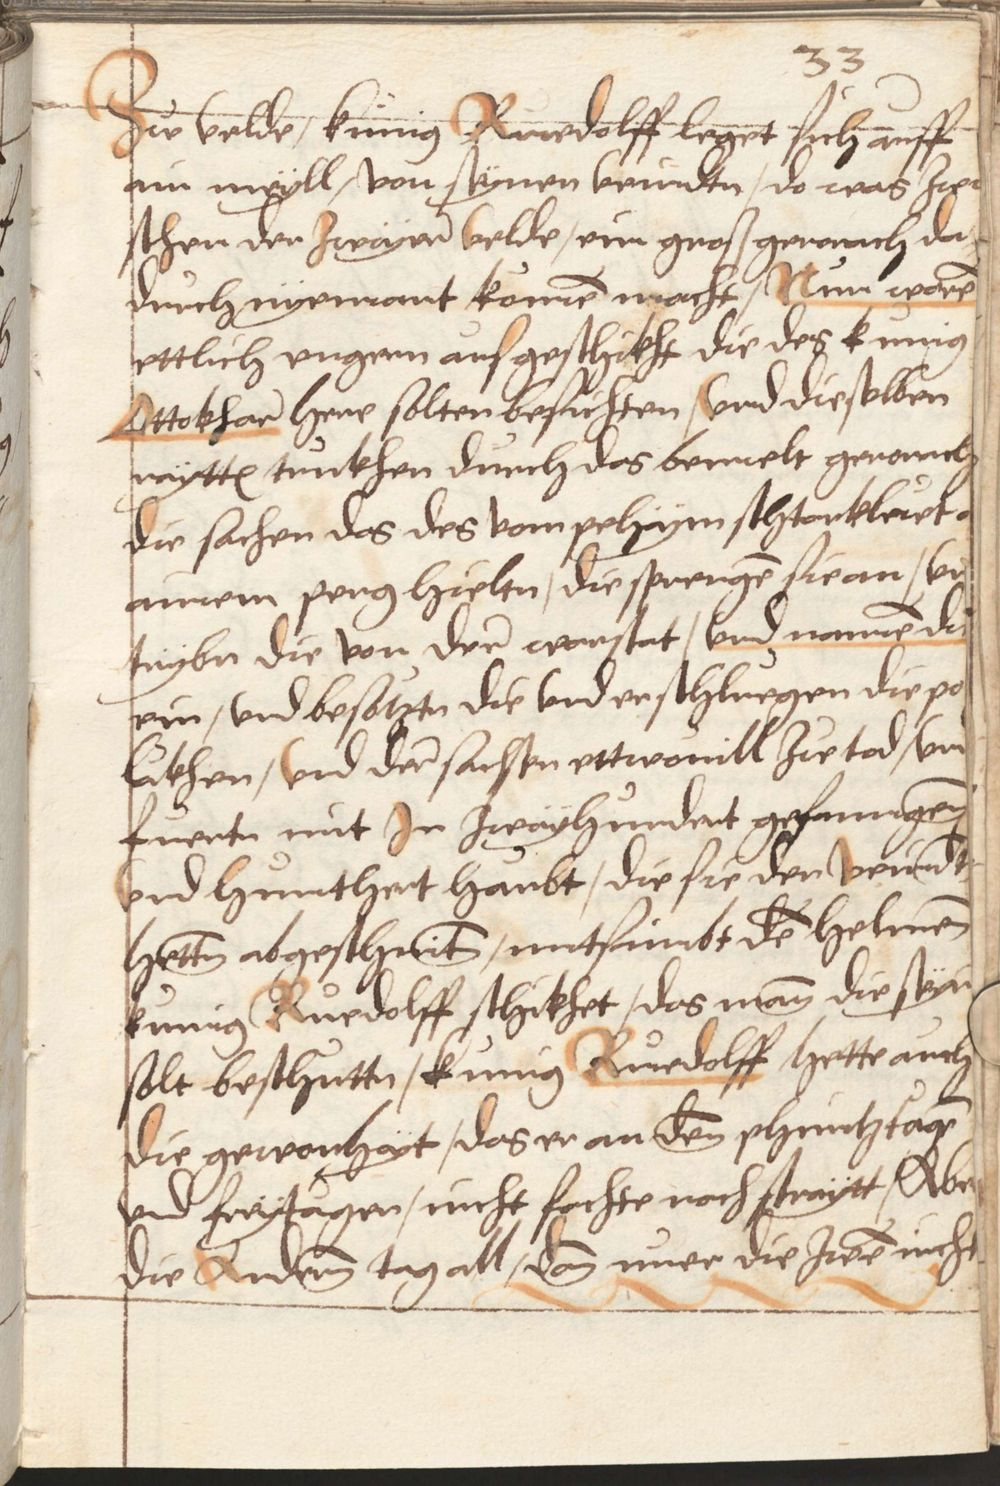 33
Zw velde / kunig Ruedolff leget sich auff
ain meyll / von seynen veindtn / do was zwi
schen der zwayer velde / ein groß gemach da
durch nyemant komen mocht / Nun waren
ettlich vngern ausgeschikht die des kunig
Ottokhar here solten besichten / vnd dieselben
raytten trukhen durch das bemelt gemach
die sachen das des vom pehaym schtarkleut a
ainem perg hieltn / die sprengen sie an / vn
triybn die von der warstat / vnd namen di
ein / vnd besatztn die vnd erschluegen die po
lakhen / vnd der sachsen ettwouill zu tod / vnd
fuertn mit Jn zwayhundert gefanngen
vnd hunthert haubt / die sie den veindt
hettn abgeschnitn / mitsambt den helmen
kunig Ruedolff schikhet / das man die seyn
solt beschuttn / kunig Ruedolff hette auch
die gewonhayt / das er an den phintztagn
vnd freytagen / nicht fachte noch straytt / Abe
die Andern tag all / dan nuer die zwen nicht